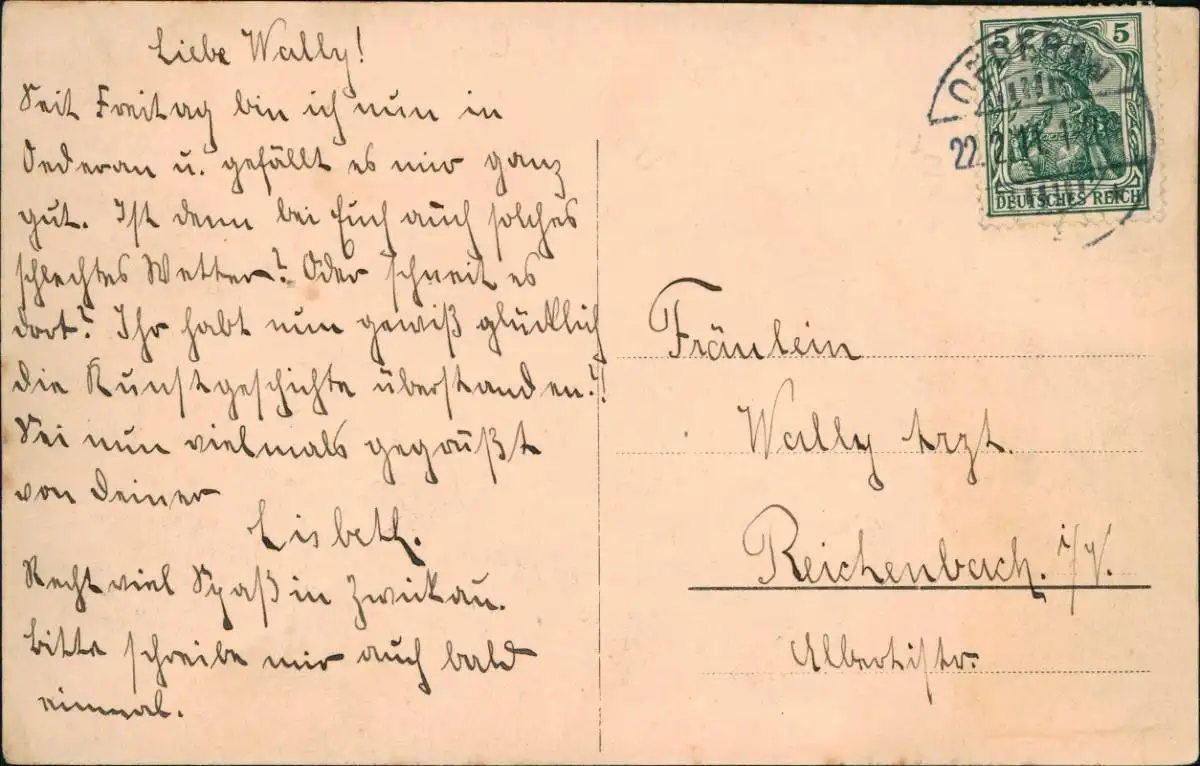 Liebe Wally!
Seit Freitag bin ich nun in
Oederan u. gefällt es mir ganz
gut. Ist denn bei Euch auch solches
schlechtes Wetter? Oder schneit es
dort? Ihr habt nun gewiß glücklich
die Kunstgeschichte überstanden?!
Sei nun vielmals gegrüßt
von Deiner
Lisbeth.
Recht viel Spaß in Zwickau.
Bitte schreibe mir auch bald
einmal.
5 5
OEDERAN
22.2.11
DEUTSCHES REICH
Fräulein
Wally Arzt.
Reichenbach. i/V.
Albertistr.